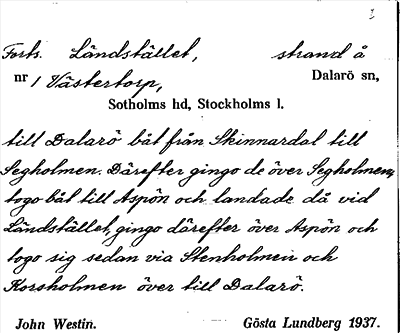 1
Forts. Ländstället, strand å
nr 1 Västertorp, Dalarö sn,
Sotholms hd, Stockholms l.
till Dalarö båt från Skinnardal till
Segholmen. Därefter gingo de över Segholmen,
togo båt till Aspön och landade då vid
Ländstället, gingo därefter över Aspön och
togo sig sedan via Stenholmen och
Korsholmen över till Dalarö.
John Westin. Gösta Lundberg 1937.